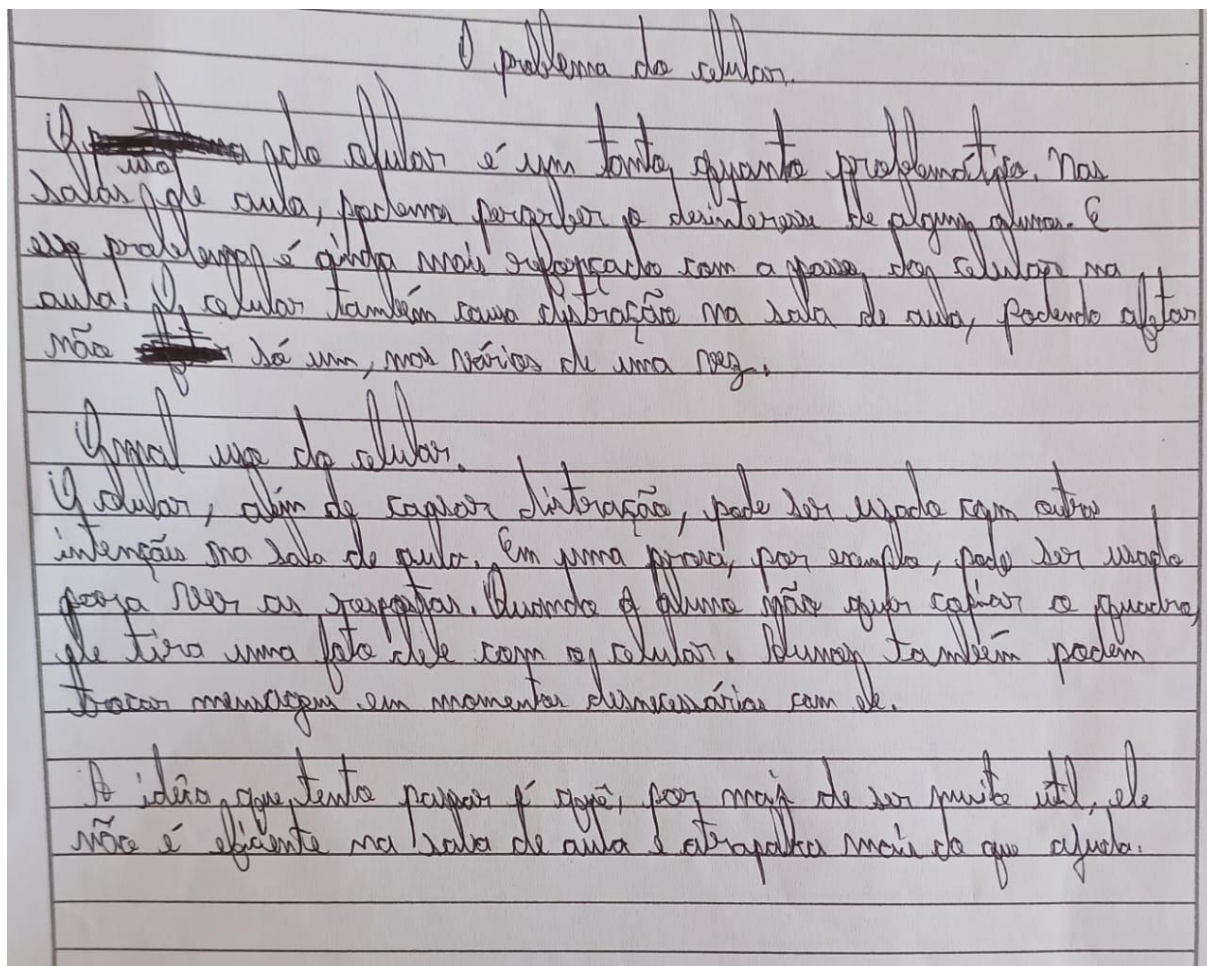 O problema do celular.
O uso do celular é um tanto quanto problemático. Nas
salas de aula, podemos perceber o desinteresse de alguns alunos. E
esse problema é ainda mais reforçado com a posse dos celulares na
aula! O celular também causa distração na sala de aula, podendo afetar
não só um, mas vários de uma vez.
O mal uso do celular.
O celular, além de causar distração, pode ser usado com outras
intenções na sala de aula. Em uma prova, por exemplo, pode ser usado
para ver as respostas. Quando o aluno não quer copiar o quadro,
ele tira uma foto dele com o celular. Alunos também podem
trocar mensagens em momentos desnecessários com ele.
A idéia que tento passar é quê, por mais de ser muito útil, ele
não é eficiente na sala de aula e atrapalha mais do que ajuda.